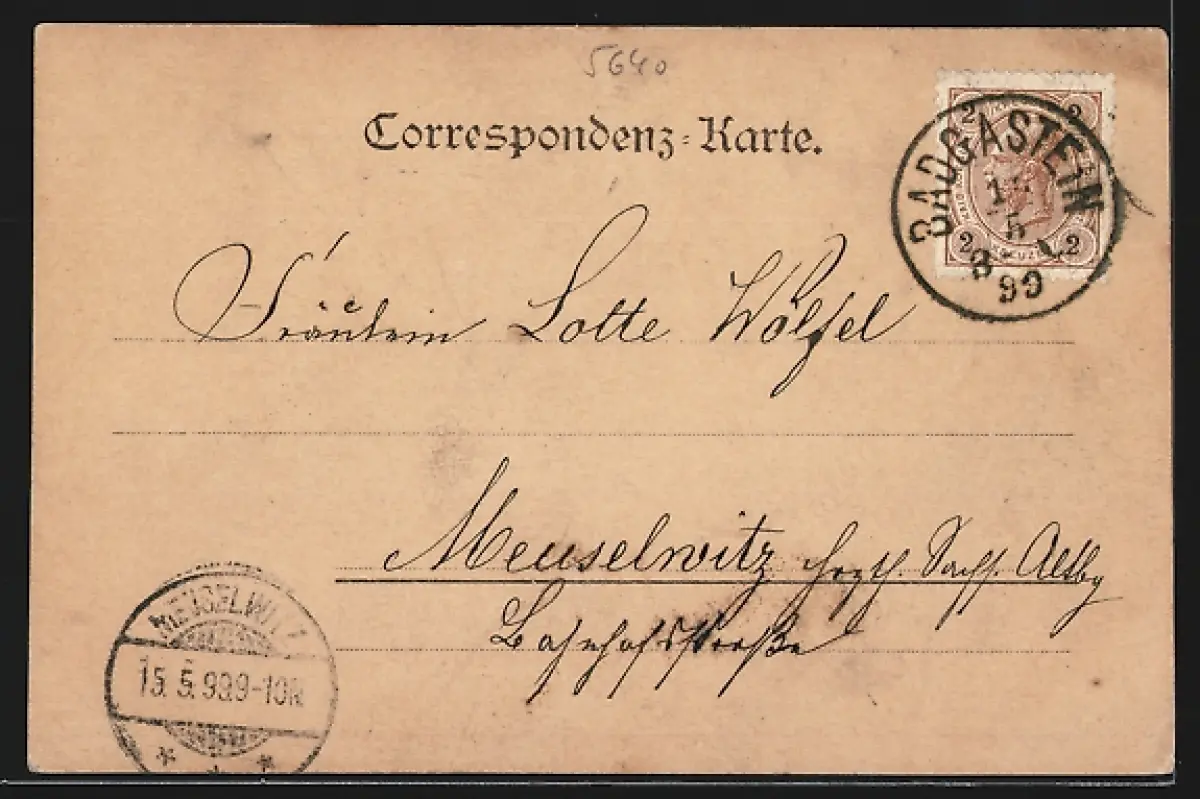 5640
Correspondenz-Karte.
2 2
BADGASTEIN
15
5
99
2 2
Fräulein Lotte Wölfel
Meuselwitz Hrzth. Sachs. Altbg
Bahnhofstraße
MEUSELWITZ
15.5.99.9-10N.
* * *